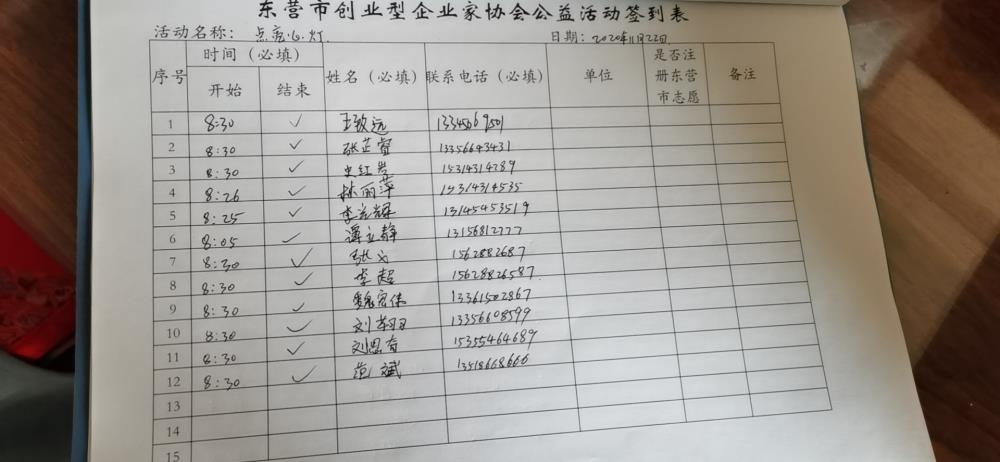 东营市创业型企业家协会公益活动签到表
活动名称：点亮心灯 日期：2020年11月22日
序号 时间（必填） 姓名（必填） 联系电话（必填） 单位 是否注册东营市志愿 备注
开始 结束
1 8:30 ✓ 王致远
2 8:30 ✓ 张芷睿 13356643431
3 8:30 ✓ 史红岩 15314314289
4 8:26 ✓ 林丽萍 15314314535
5 8:25 ✓ 13145453519
6 8:05 ✓ 谭立静 13156812777
7 8:30 ✓ 张 1562882687
8 8:30 ✓ 李超 15628826587
9 8:30 ✓ 魏宏伟 13361502867
10 8:30 ✓ 刘 13356608599
11 8:30 ✓ 刘思奇 15355464689
12 8:30 ✓ 范斌 13518668666
13
14
15